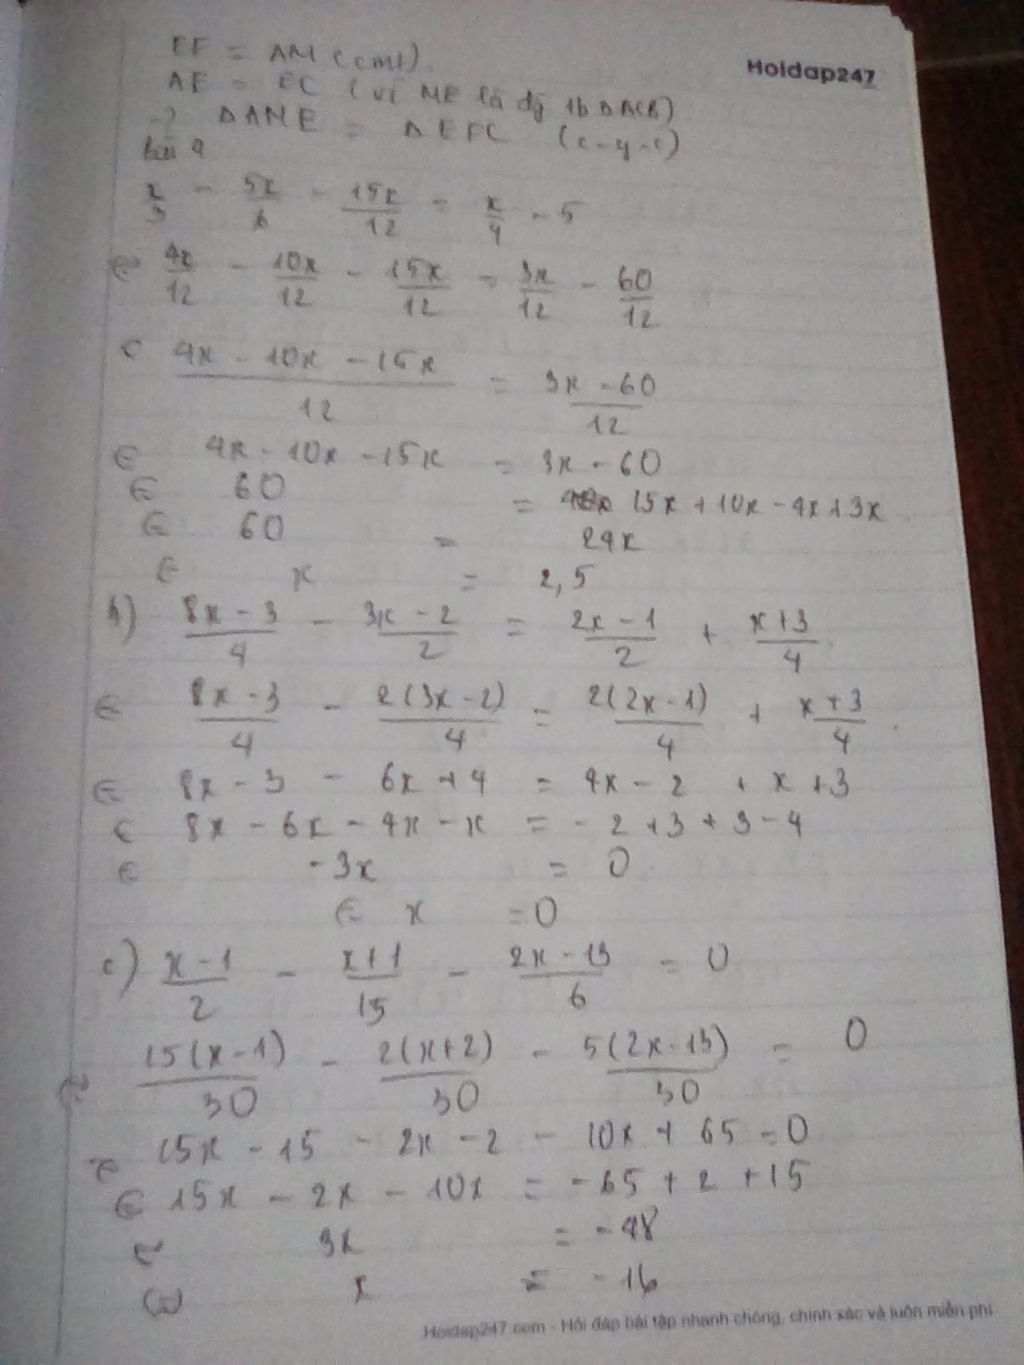 EF = AM (cmt)
Hoidap247
AE = EC (vì ME là đg tb ΔACB)
-> ΔAME = ΔEFC (c-g-c)
bài 9
x/3 - 5x/6 - 15x/12 = x/4 - 5
⇔ 4x/12 - 10x/12 - 15x/12 = 3x/12 - 60/12
⇔ 4x - 10x - 15x/12 = 3x - 60/12
⇔ 4x - 10x - 15x = 3x - 60
⇔ 60 = 15x + 10x - 4x + 3x
⇔ 60 = 24x
⇔ x = 2,5
b) 8x - 3/4 - 3x - 2/2 = 2x - 1/2 + x + 3/4
⇔ 8x - 3/4 - 2(3x - 2)/4 = 2(2x - 1)/4 + x + 3/4
⇔ 8x - 3 - 6x + 4 = 4x - 2 + x + 3
⇔ 8x - 6x - 4x - x = - 2 + 3 + 3 - 4
⇔ -3x = 0
⇔ x = 0
c) x - 1/2 - x + 1/15 - 2x - 13/6 = 0
⇔ 15(x - 1)/30 - 2(x + 2)/30 - 5(2x - 13)/30 = 0
⇔ 15x - 15 - 2x - 2 - 10x + 65 = 0
⇔ 15x - 2x - 10x = -65 + 2 + 15
⇔ 3x = -48
⇔ x = -16
Hoidap247.com - Hỏi đáp bài tập nhanh chóng, chính xác và luôn miễn phí